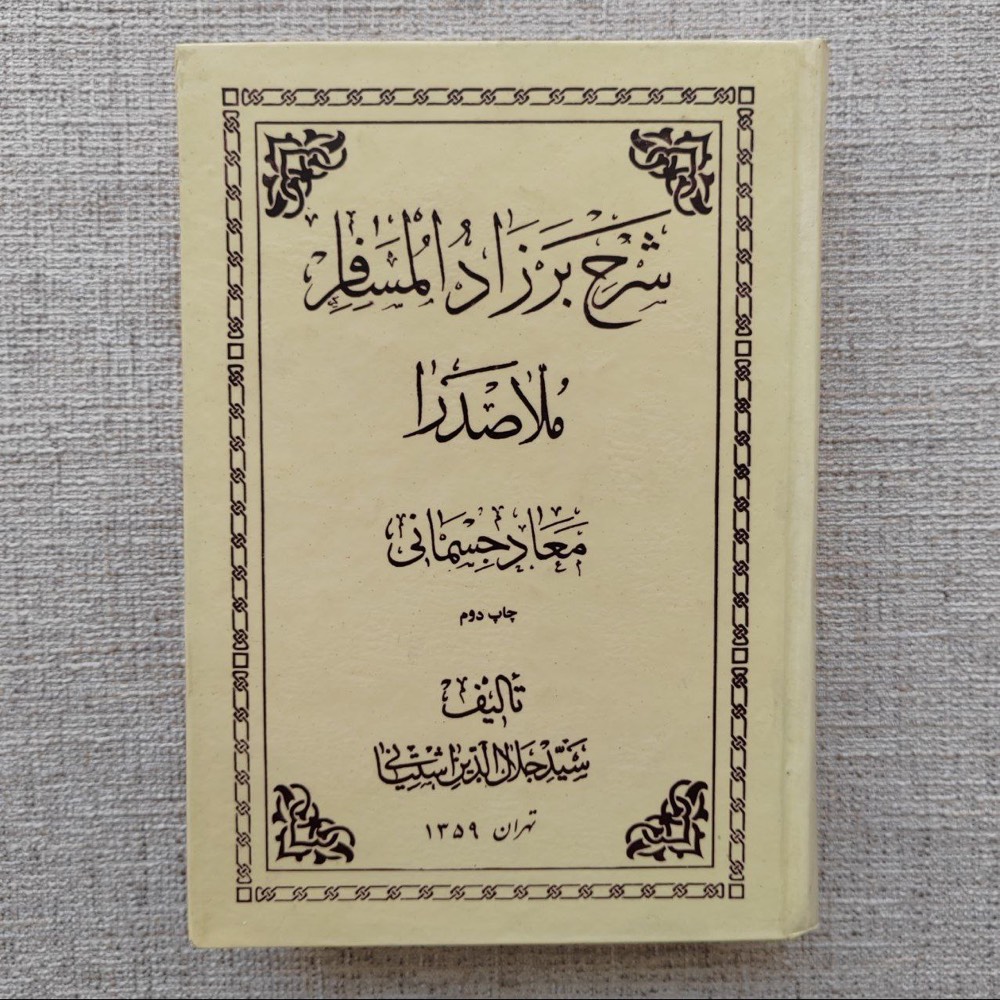 شرح بر زاد المسافر
ملاصدرا
معاد جسمانی
چاپ دوم
تألیف
سید جلال الدین آشتیانی
تهران ۱۳۵۹